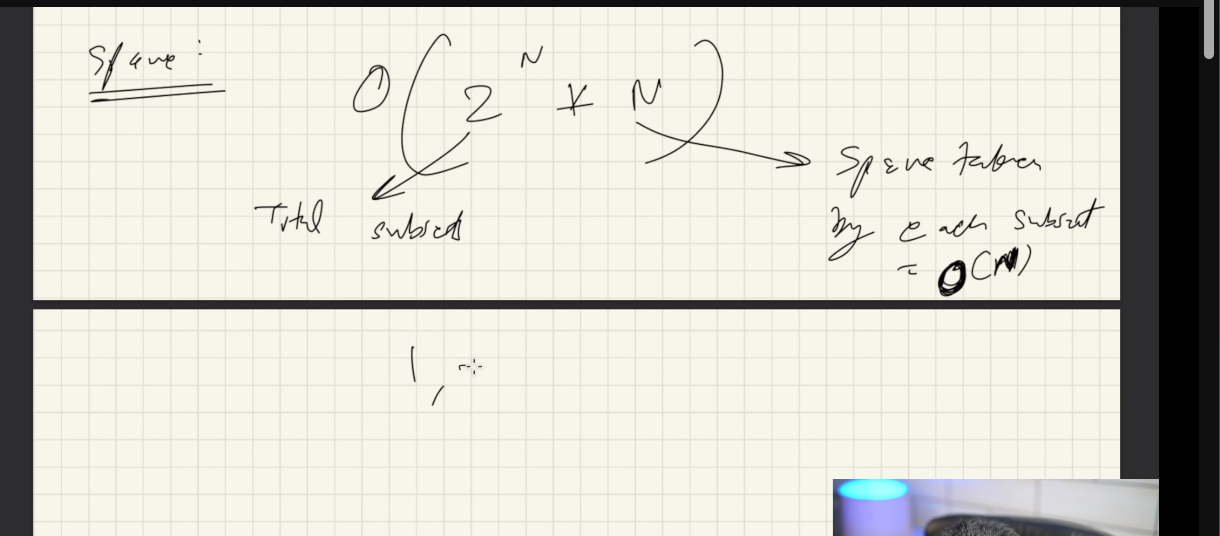 Space :
O(2^N * N)
Total subsets
Space taken
by each subset
= O(N)
1,